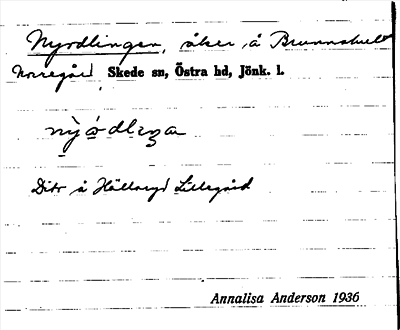 Nyrdlingen, åker å Brunnshult
Norregård Skede sn, Östra hd, Jönk. l.
Dito å Hälleryd Lillegård
Annalisa Anderson 1936